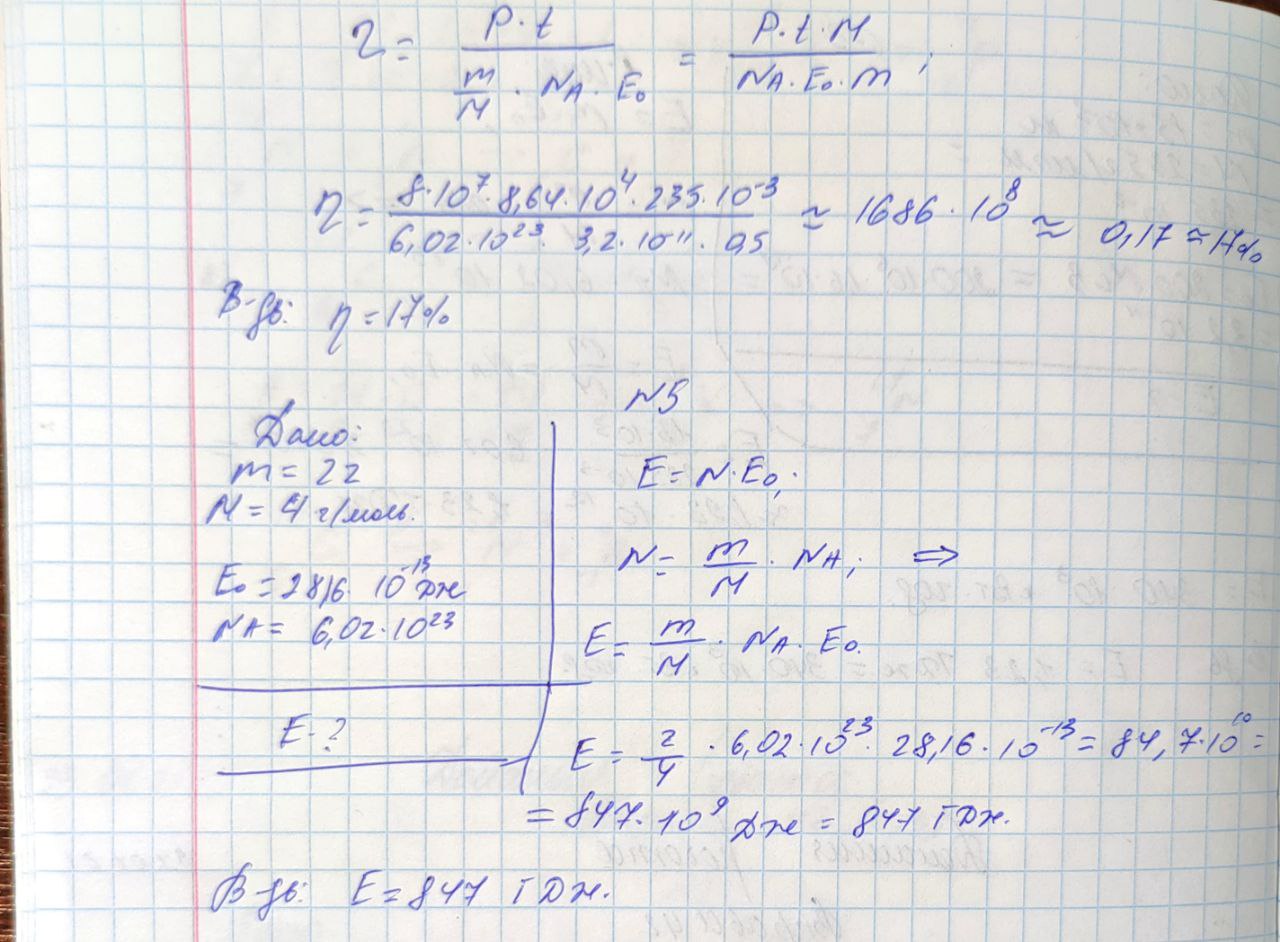 η = P·t / (m/M · NA · E₀) = P·t·M / (NA·E₀·m) ;
η = 8·10⁷·8,64·10⁴·235·10⁻³ / (6,02·10²³·3,2·10⁻¹¹·0,5) ≈ 1686·10⁸ ≈ 0,17 ≈ 17%
В-дь: η = 17%
N3
Дано:
m = 2г
M = 4 г/моль.
E₀ = 2816·10⁻¹³ Дж
NA = 6,02·10²³
E-?
E = N·E₀;
N = m/M · NA; ⇒
E = m/M · NA·E₀.
E = 2/4 · 6,02·10²³·28,16·10⁻¹³ = 84,7·10¹⁰ =
= 847·10⁹ Дж = 847 ГДж.
В-дь: E = 847 ГДж.